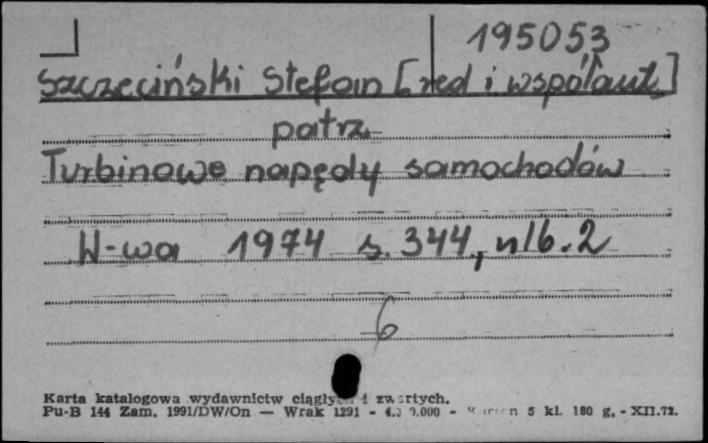 195053
Szczeciński Stefan [red i współaut]
patrz
Turbinowe napędy samochodów
W-wa 1974 s. 344, nlb. 2
6
Karta katalogowa wydawnictw ciągłych i zwartych.
Pu-B 144 Zam. 1991/DW/On — Wrak 1291 - 5 kl. 180 g. - XII.72.